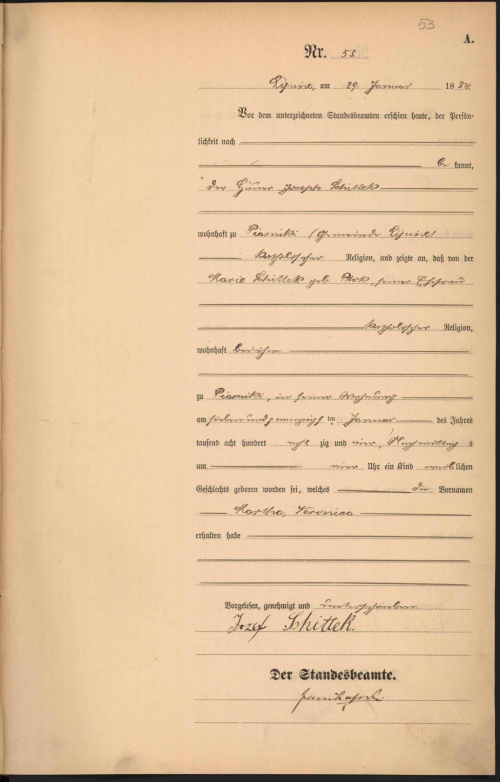 53
A.
Nr. 53
Lipine, am 29. Januar 1884.
Vor dem unterzeichneten Standesbeamten erschien heute, der Persön-
lichkeit nach
be kannt,
der Häuer Joseph Schittek
wohnhaft zu Piasniki (Gemeinde Lipine)
katholischer Religion, und zeigte an, daß von der
Marie Schittek geb. , seiner Ehefrau
katholischer Religion,
wohnhaft bei ihm
zu Piasniki, in seiner Wohnung
am siebenundzwanzigsten im Januar des Jahres
tausend acht hundert acht zig und vier, Nachmittag s
um vier Uhr ein Kind weiblichen
Geschlechts geboren worden sei, welches die Vornamen
Martha, Veronica
erhalten habe
Vorgelesen, genehmigt und unterschrieben
Jozef Schittek.
Der Standesbeamte.